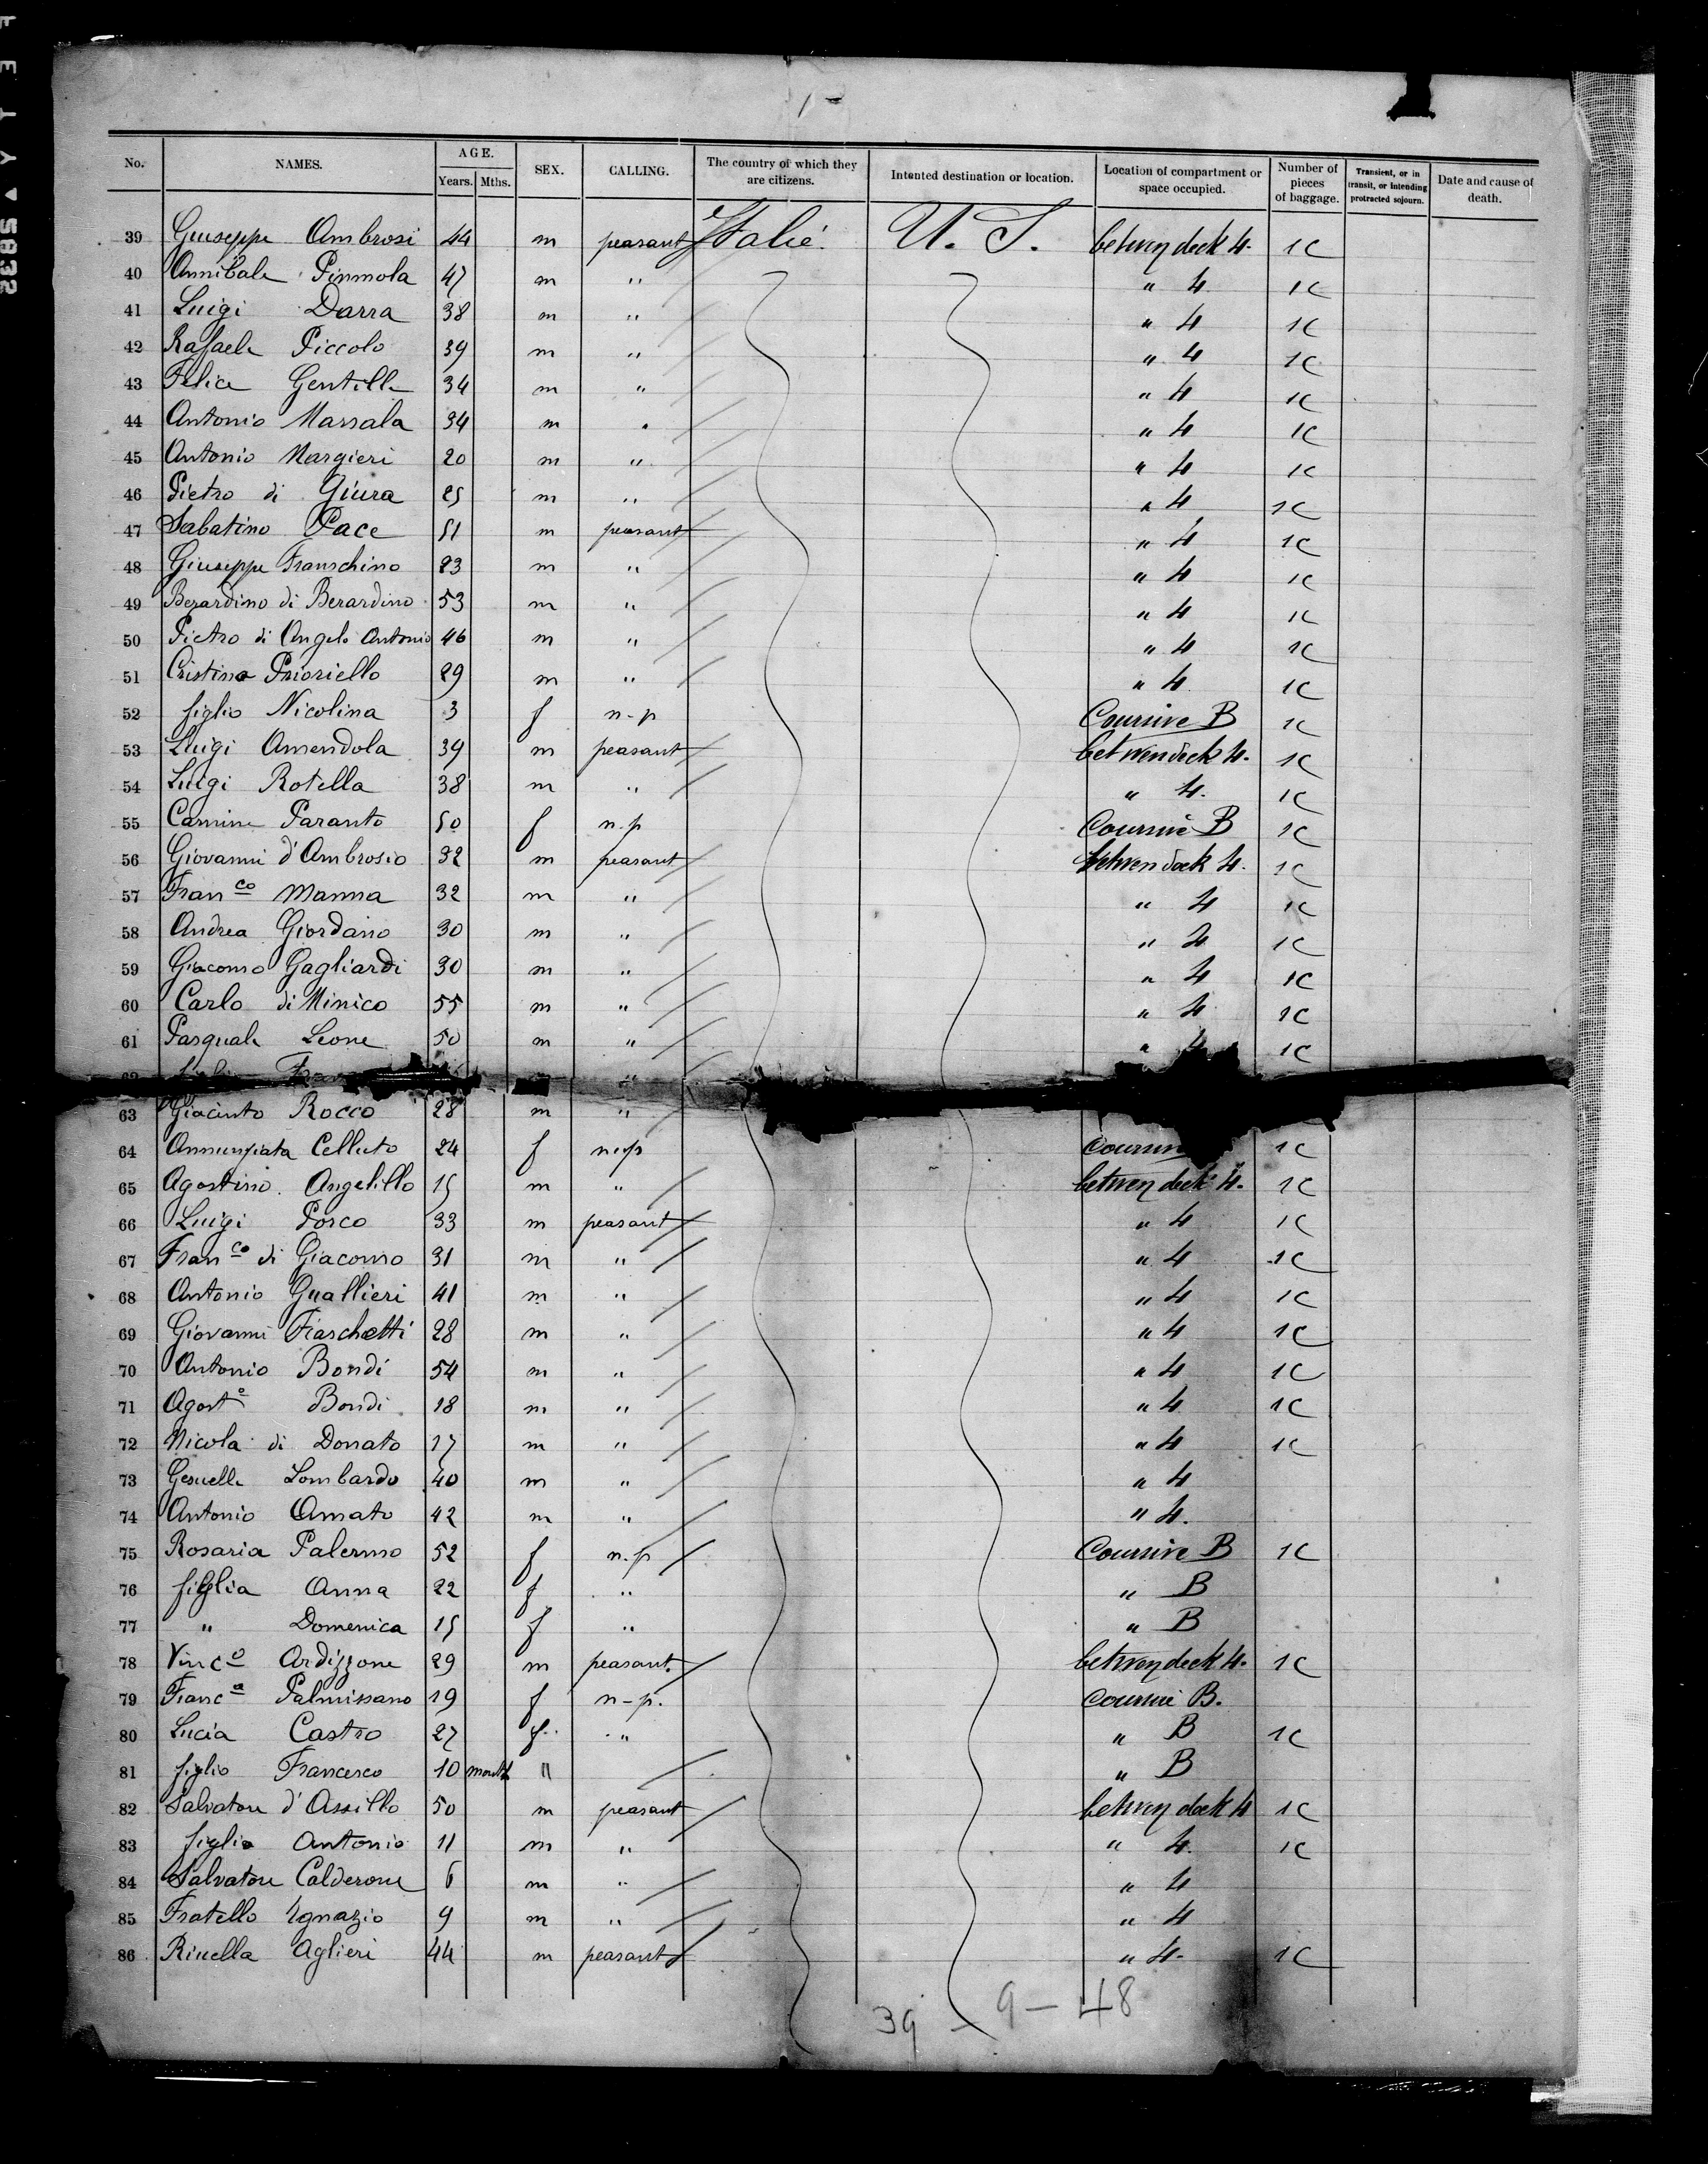 1 -
No. NAMES. AGE. Years. Mths. SEX. CALLING. The country of which they are citizens. Intented destination or location. Location of compartment or space occupied. Number of pieces of baggage. Transient, or in transit, or intending protracted sojourn. Date and cause of death.
39 Giuseppe Ambrosi 44 m peasant Italie U. S. betwen deck 4. 1C
40 Annibale Pinmola 47 m " " 4 1C
41 Luigi Darra 38 m " " 4 1C
42 Raffaele Piccolo 39 m " " 4 1C
43 Felice Gentille 34 m " " 4 1C
44 Antonio Marsala 34 m " " 4 1C
45 Antonio Margieri 20 m " " 4 1C
46 Pietro di Giura 25 m " " 4 1C
47 Sabatino Pace 51 m peasant " 4 1C
48 Giuseppe Franschino 23 m " " 4 1C
49 Berardino di Berardino 53 m " " 4 1C
50 Pietro di Angelo Antonio 46 m " " 4 1C
51 Cristina Prioriello 29 m " " 4 1C
52 figlio Nicolina 3 f n-p Coursive B 1C
53 Luigi Amendola 39 m peasant betwendeck 4. 1C
54 Luigi Rotella 38 m " " 4. 1C
55 Carmine Paranto 50 f n.p Coursive B 1C
56 Giovanni d'Ambrosio 32 m peasant betwendeck 4. 1C
57 Franco Manna 32 m " " 4 1C
58 Andrea Giordano 30 m " " 4 1C
59 Giacomo Gagliardi 30 m " " 4 1C
60 Carlo di Minico 55 m " " 4 1C
61 Pasquale Leone 50 m " " 4 1C
62 "
63 Giacinto Rocco 28 m "
64 Annunziata Celluto 24 f n.p 1C
65 Agostino Angelillo 15 m " betwen deck 4. 1C
66 Luigi Porco 33 m peasant " 4 1C
67 Franco di Giacomo 31 m " " 4 1C
68 Antonio Guallieri 41 m " " 4 1C
69 Giovanni Fiaschetti 28 m " " 4 1C
70 Antonio Bondi 54 m " " 4 1C
71 Agosto Bondi 18 m " " 4 1C
72 Nicola di Donato 17 m " " 4 1C
73 Gesuelle Lombardo 40 m " " 4
74 Antonio Amato 42 m " " 4.
75 Rosaria Palermo 52 f n.p Coursive B 1C
76 figlia Anna 22 f " " B
77 " Domenica 15 f " " B
78 Vinco Ardizzone 29 m peasant. betwen deck 4. 1C
79 Franca Palmissano 19 f n-p. Coursive B.
80 Lucia Castro 27 f " " B 1C
81 figlio Francesco 10 month " " B
82 Salvatore d'Assillo 50 m peasant betwen deck 4 1C
83 figlio Antonio 11 m " " 4. 1C
84 Salvatore Calderone 6 m " " 4
85 Fratello Ignazio 9 m " " 4
86 Rinella Aglieri 44 m peasant " 4. 1C
39 - 9 - 48